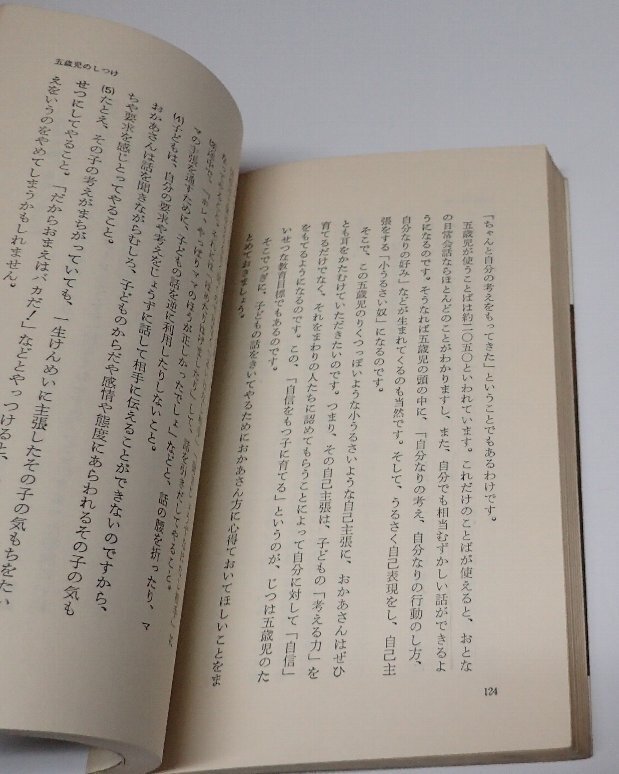 「ちゃんと自分の考えをもってきた」ということでもあるわけです。
五歳児が使うことばは約二〇五〇といわれています。これだけのことばが使えると、おとな
の日常会話ならほとんどのことがわかりますし、また、自分でも相当むずかしい話ができるよ
うになるのです。そうなれば五歳児の頭の中に、「自分なりの考え、自分なりの行動のし方、
自分なりの好み」などが生まれてくるのも当然です。そして、うるさく自己表現をし、自己主
張をする「小うるさい奴」になるのです。
そこで、この五歳児のりくつっぽいような小うるさいような自己主張に、おかあさんはぜひ
とも耳をかたむけていただきたいのです。つまり、その自己主張は、子どもの「考える力」を
育てるだけでなく、それをまわりの人たちに認めてもらうことによって自分に対して「自信」
をもてるようになるのです。この、「自信をもつ子に育てる」というのが、じつは五歳児のた
いせつな教育目標でもあるのです。
そこでつぎに、子どもの話をきいてやるためにおかあさん方に心得ておいてほしいことをま
とめておきましょう。
124
五歳児のしつけ
やっぱりママのほうが正しかったでしょ」などと、話の腰を折ったり、マ
マの主張を通すために、子どもの話を逆に利用したりしないこと。
(4)子どもは、自分の要求や考えをじょうずに話して相手に伝えることができないのですから、
おかあさんは話を聞きながらむしろ、子どものからだや感情や態度にあらわれるその子の気も
ちや要求を感じとってやること。
(5)たとえ、その子の考えがまちがっていても、一生けんめいに主張したその子の気もちをたい
せつにしてやること。「だからおまえはバカだ！」などとやっつけると、
えをいうのをやめてしまうかもしれません。